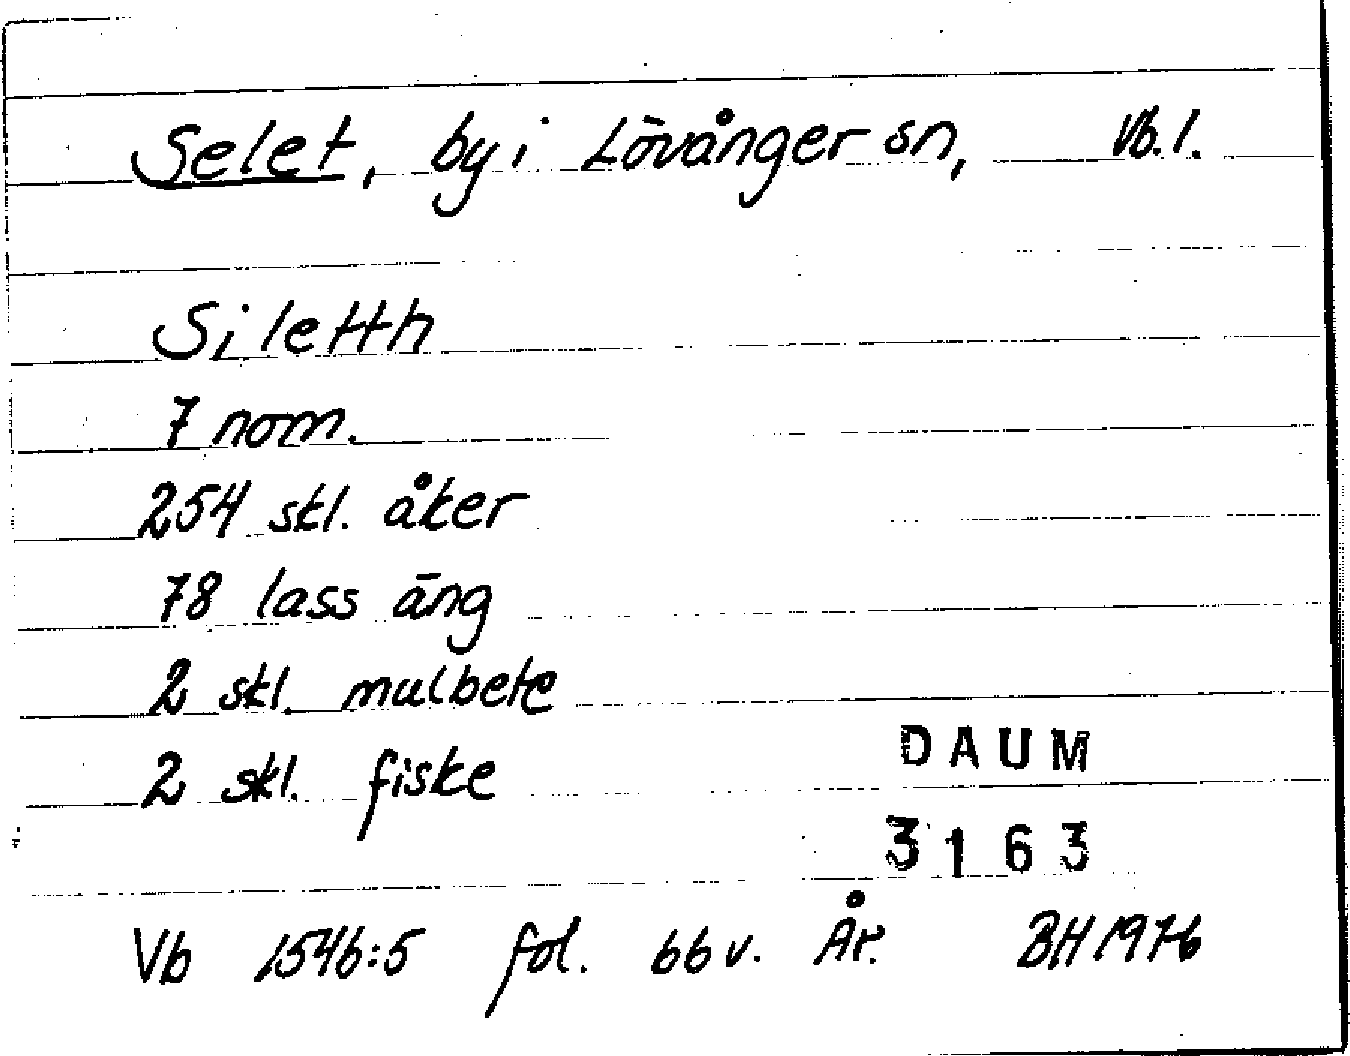 Selet, by i Lövånger sn, Vb. l.
Siletth
7 nom.
254 skl. åker
78 lass äng
2 skl. mulbete
2 skl. fiske
DAUM
3163
Vb 1546:5 fol. 66 v. År. BH 1976